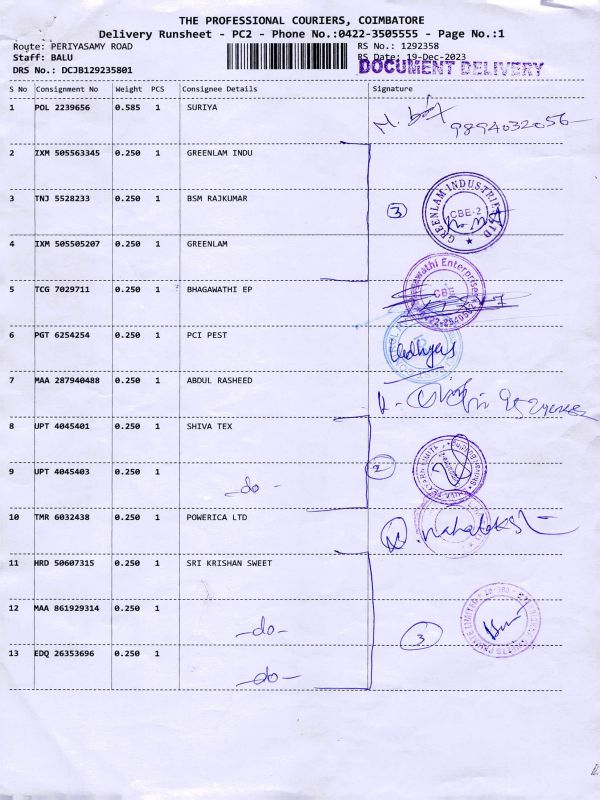 THE PROFESSIONAL COURIERS, COIMBATORE
Delivery Runsheet - PC2 - Phone No.:0422-3505555 - Page No.:1
Route: PERIYASAMY ROAD RS No.: 1292358
Staff: BALU RS Date: 19-Dec-2023
DRS No.: DCJB129235801 DOCUMENT DELIVERY
S No Consignment No Weight PCS Consignee Details Signature
1 POL 2239656 0.585 1 SURIYA
9894032056
2 IXM 505563345 0.250 1 GREENLAM INDU
3 TNJ 5528233 0.250 1 BSM RAJKUMAR 3 GREENLAM INDUSTRIES LTD CBE-2
4 IXM 505505207 0.250 1 GREENLAM
5 TCG 7029711 0.250 1 BHAGAWATHI EP Bhagawathi Enterprises CBE
6 PGT 6254254 0.250 1 PCI PEST
7 MAA 287940488 0.250 1 ABDUL RASHEED
8 UPT 4045401 0.250 1 SHIVA TEX
9 UPT 4045403 0.250 1 -do- 2
10 TMR 6032438 0.250 1 POWERICA LTD
11 HRD 50607315 0.250 1 SRI KRISHAN SWEET
12 MAA 861929314 0.250 1 -do- 3
13 EDQ 26353696 0.250 1 -do-